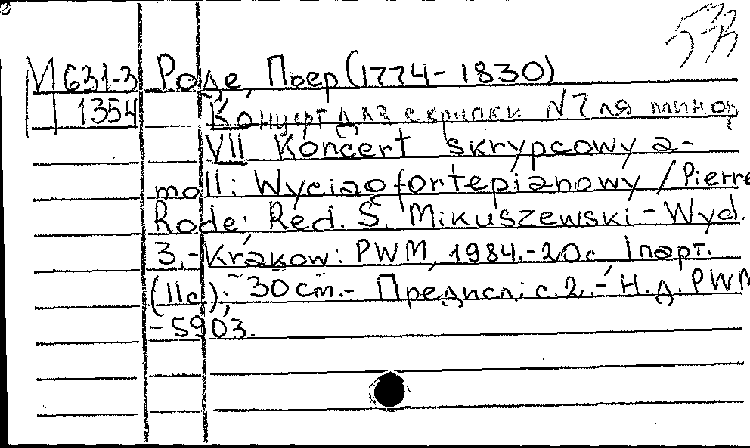 М 631-3 Роде, Пьер (1774-1830)
1354 Концерт для скрипки N7 ля минор
VII Koncert skrypcowy a-
moll: Wyciąg fortepianowy / Pierre
Rode; Red. S. Mikuszewski - Wyd.
3.- Kraków: PWM, 1984.-20с. 1парт.
(11с); 30 cm.- Предисл.: с.2.- Н.д. PWM
-5903.